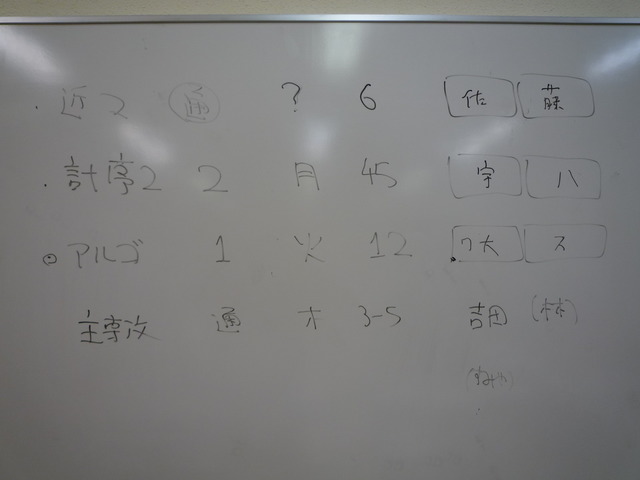 ・近2 通 ? 6 佐 藤
・計序2 2 月 45 宇 八
アルゴ 1 火 12 ワ大 ス
主専攻 通 木 3-5 吉田 (林)